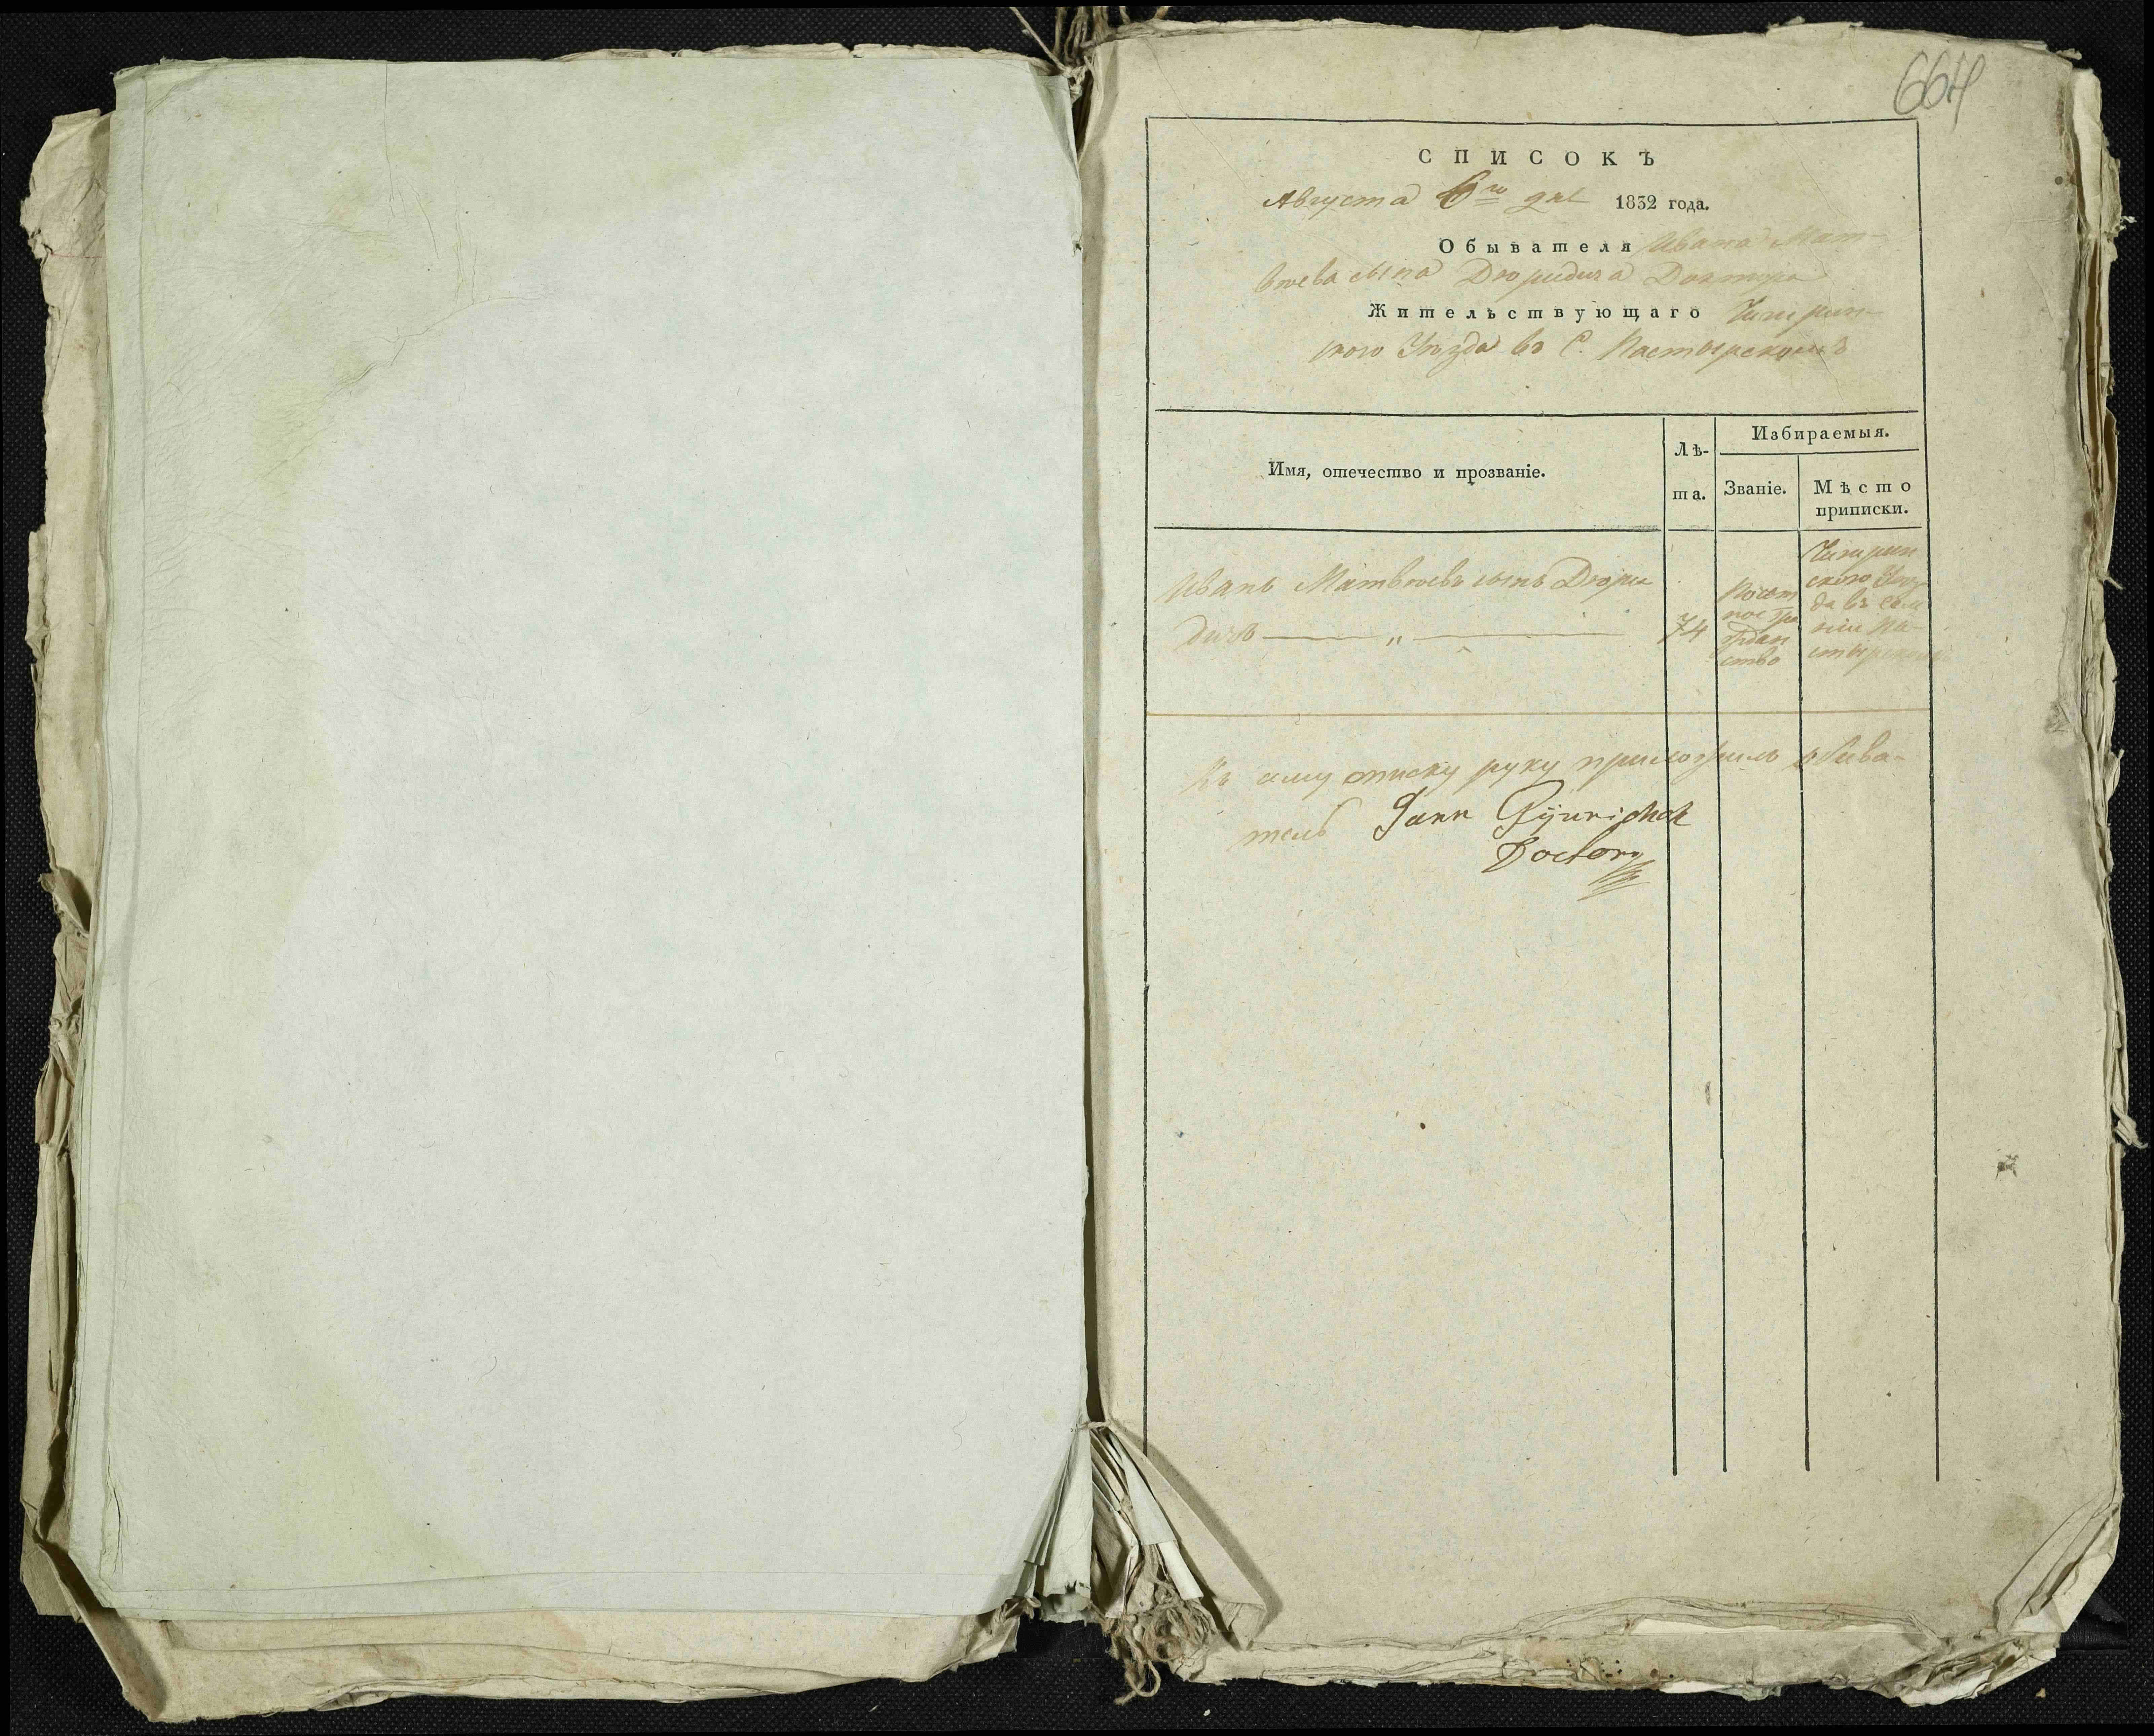 664
СПИСОКЪ
Августа 6го дня 1832 года.
Обывателя Ивана Мат-
вѣева сына Дюридича Доктора
Жительствующаго Чигрин-
ского Уѣзда въ С. Пастырскомъ
Имя, отечество и прозваніе.
Лѣ-
та.
Избираемыя.
Званіе.
Мѣсто
приписки.
Иванъ Матвѣевъ сынъ Дюри
дичъ — " —
74
Почот
ное Гра
ждан
ство
Чигрин
ского Уѣз
да въ Селе
ніи Па
стырскомъ
Къ сему списку руку приложилъ обыва-
тель Joann
Doctor